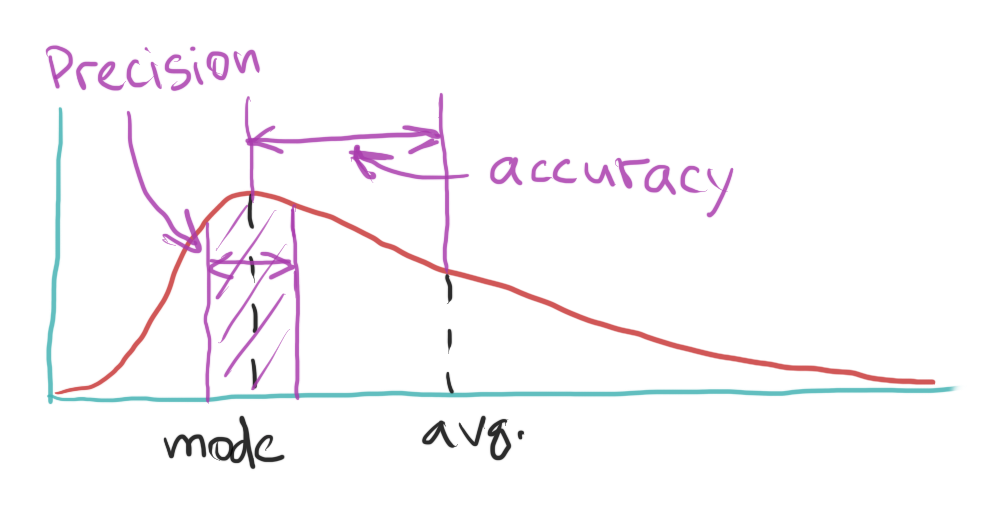 Precision
accuracy
mode
avg.